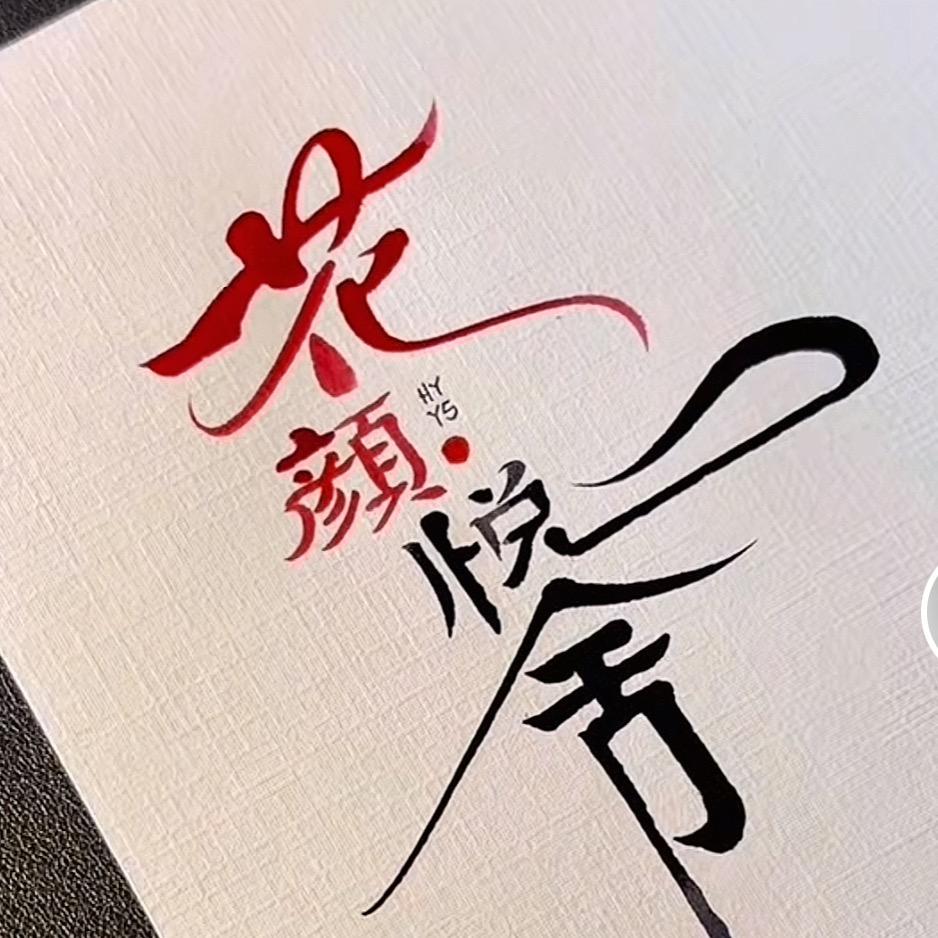 花
顏
HY
YS
悦
舍